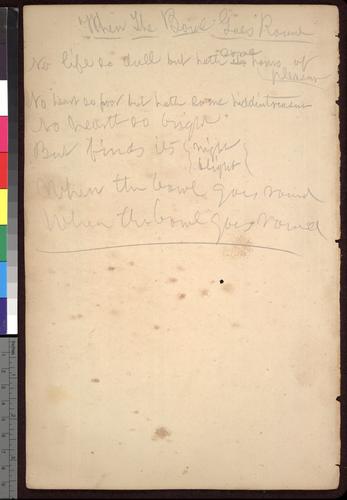 "When The Bowl Goes Round
No life so dull but hath some hours of
pleasure
No heart so poor but hath some hidden
No hearth so bright
But finds its { night
blight {
When the bowl goes round
When the bowl goes round